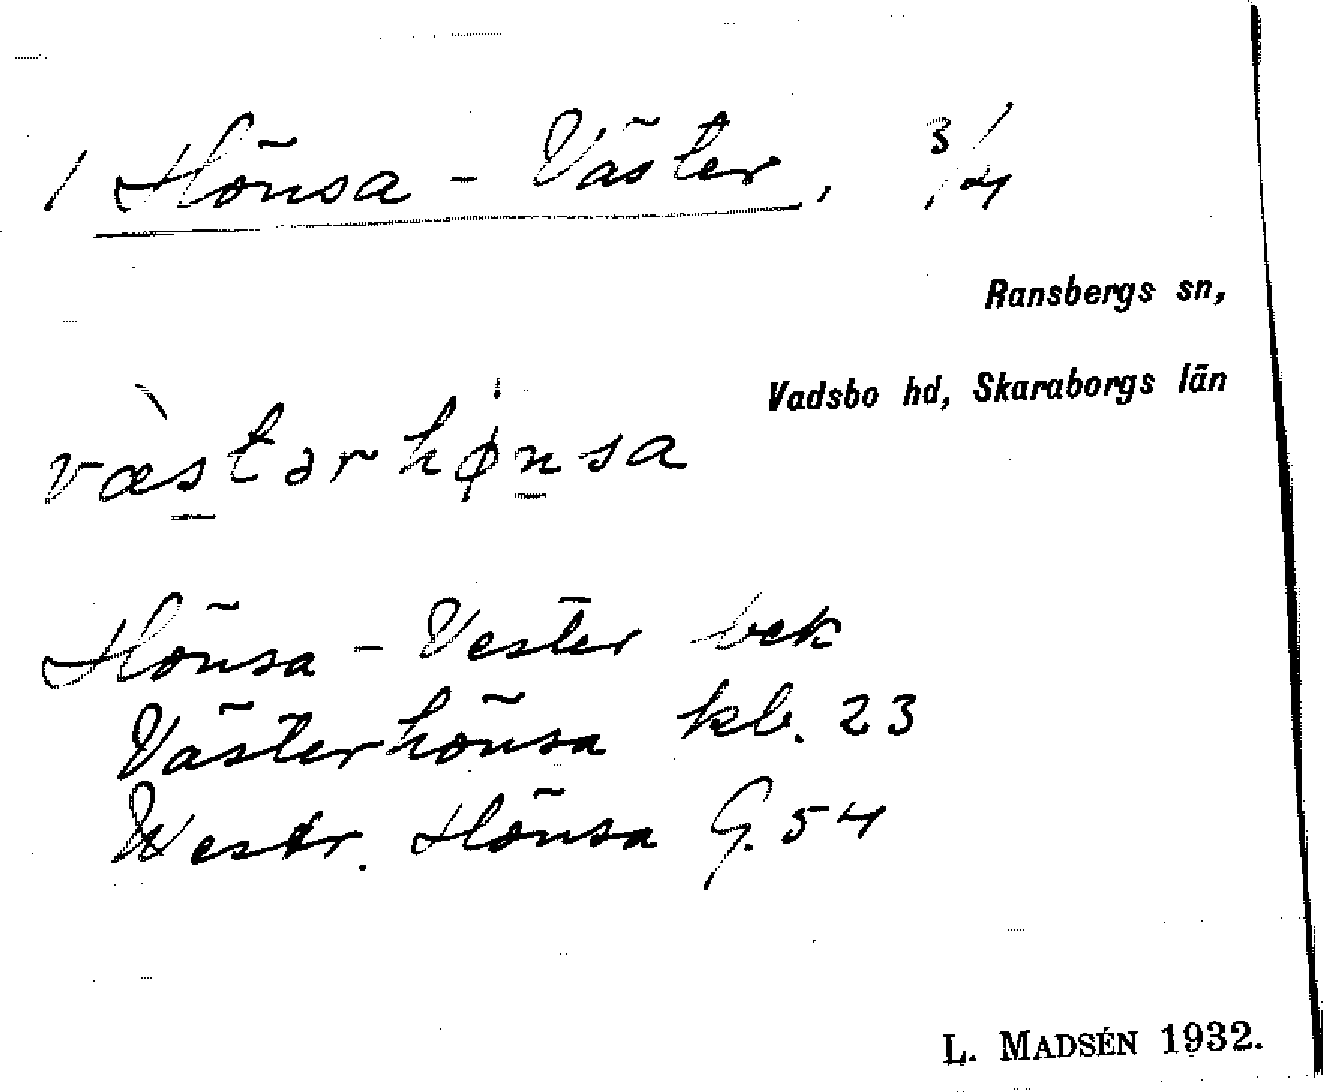 1 Hönsa - Väster, 3/4
Ransbergs sn,
Vadsbo hd, Skaraborgs län
væ̀stərhønsa
Hönsa - Vester bek
Västerhönsa kb. 23
Westr. Hönsa G. 54
L. MADSÉN 1932.